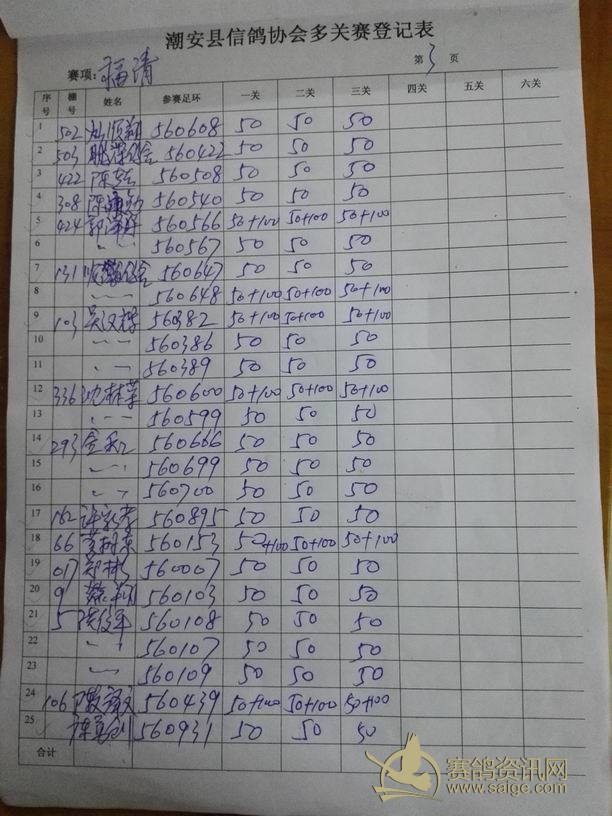 潮安县信鸽协会多关赛登记表
赛项: 福清 第3页
序号 棚号 姓名 参赛足环 一关 二关 三关 四关 五关 六关
1 502 560608 50 50 50
2 503 560422 50 50 50
3 422 陈 560508 50 50 50
4 308 陈 560540 50 50 50
5 424 郭 560566 50+100 50+100 50+100
6 〃 560567 50 50 50
7 131 560647 50 50 50
8 〃 560648 50+100 50+100 50+100
9 103 吴汉 560382 50+100 50+100 50+100
10 〃 560386 50 50 50
11 〃 560389 50 50 50
12 336 沈林 560600 50+100 50+100 50+100
13 〃 560599 50 50 50
14 293 560666 50 50 50
15 〃 560699 50 50 50
16 〃 560700 50 50 50
17 162 许 560895 50 50 50
18 66 560153 50+100 50+100 50+100
19 017 郑彬 560007 50 50 50
20 9 560103 50 50 50
21 5 560108 50 50 50
22 〃 560107 50 50 50
23 〃 560109 50 50 50
24 106 560439 50+100 50+100 50+100
25 560931 50 50 50
合计
赛鸽资讯网
www.saige.com